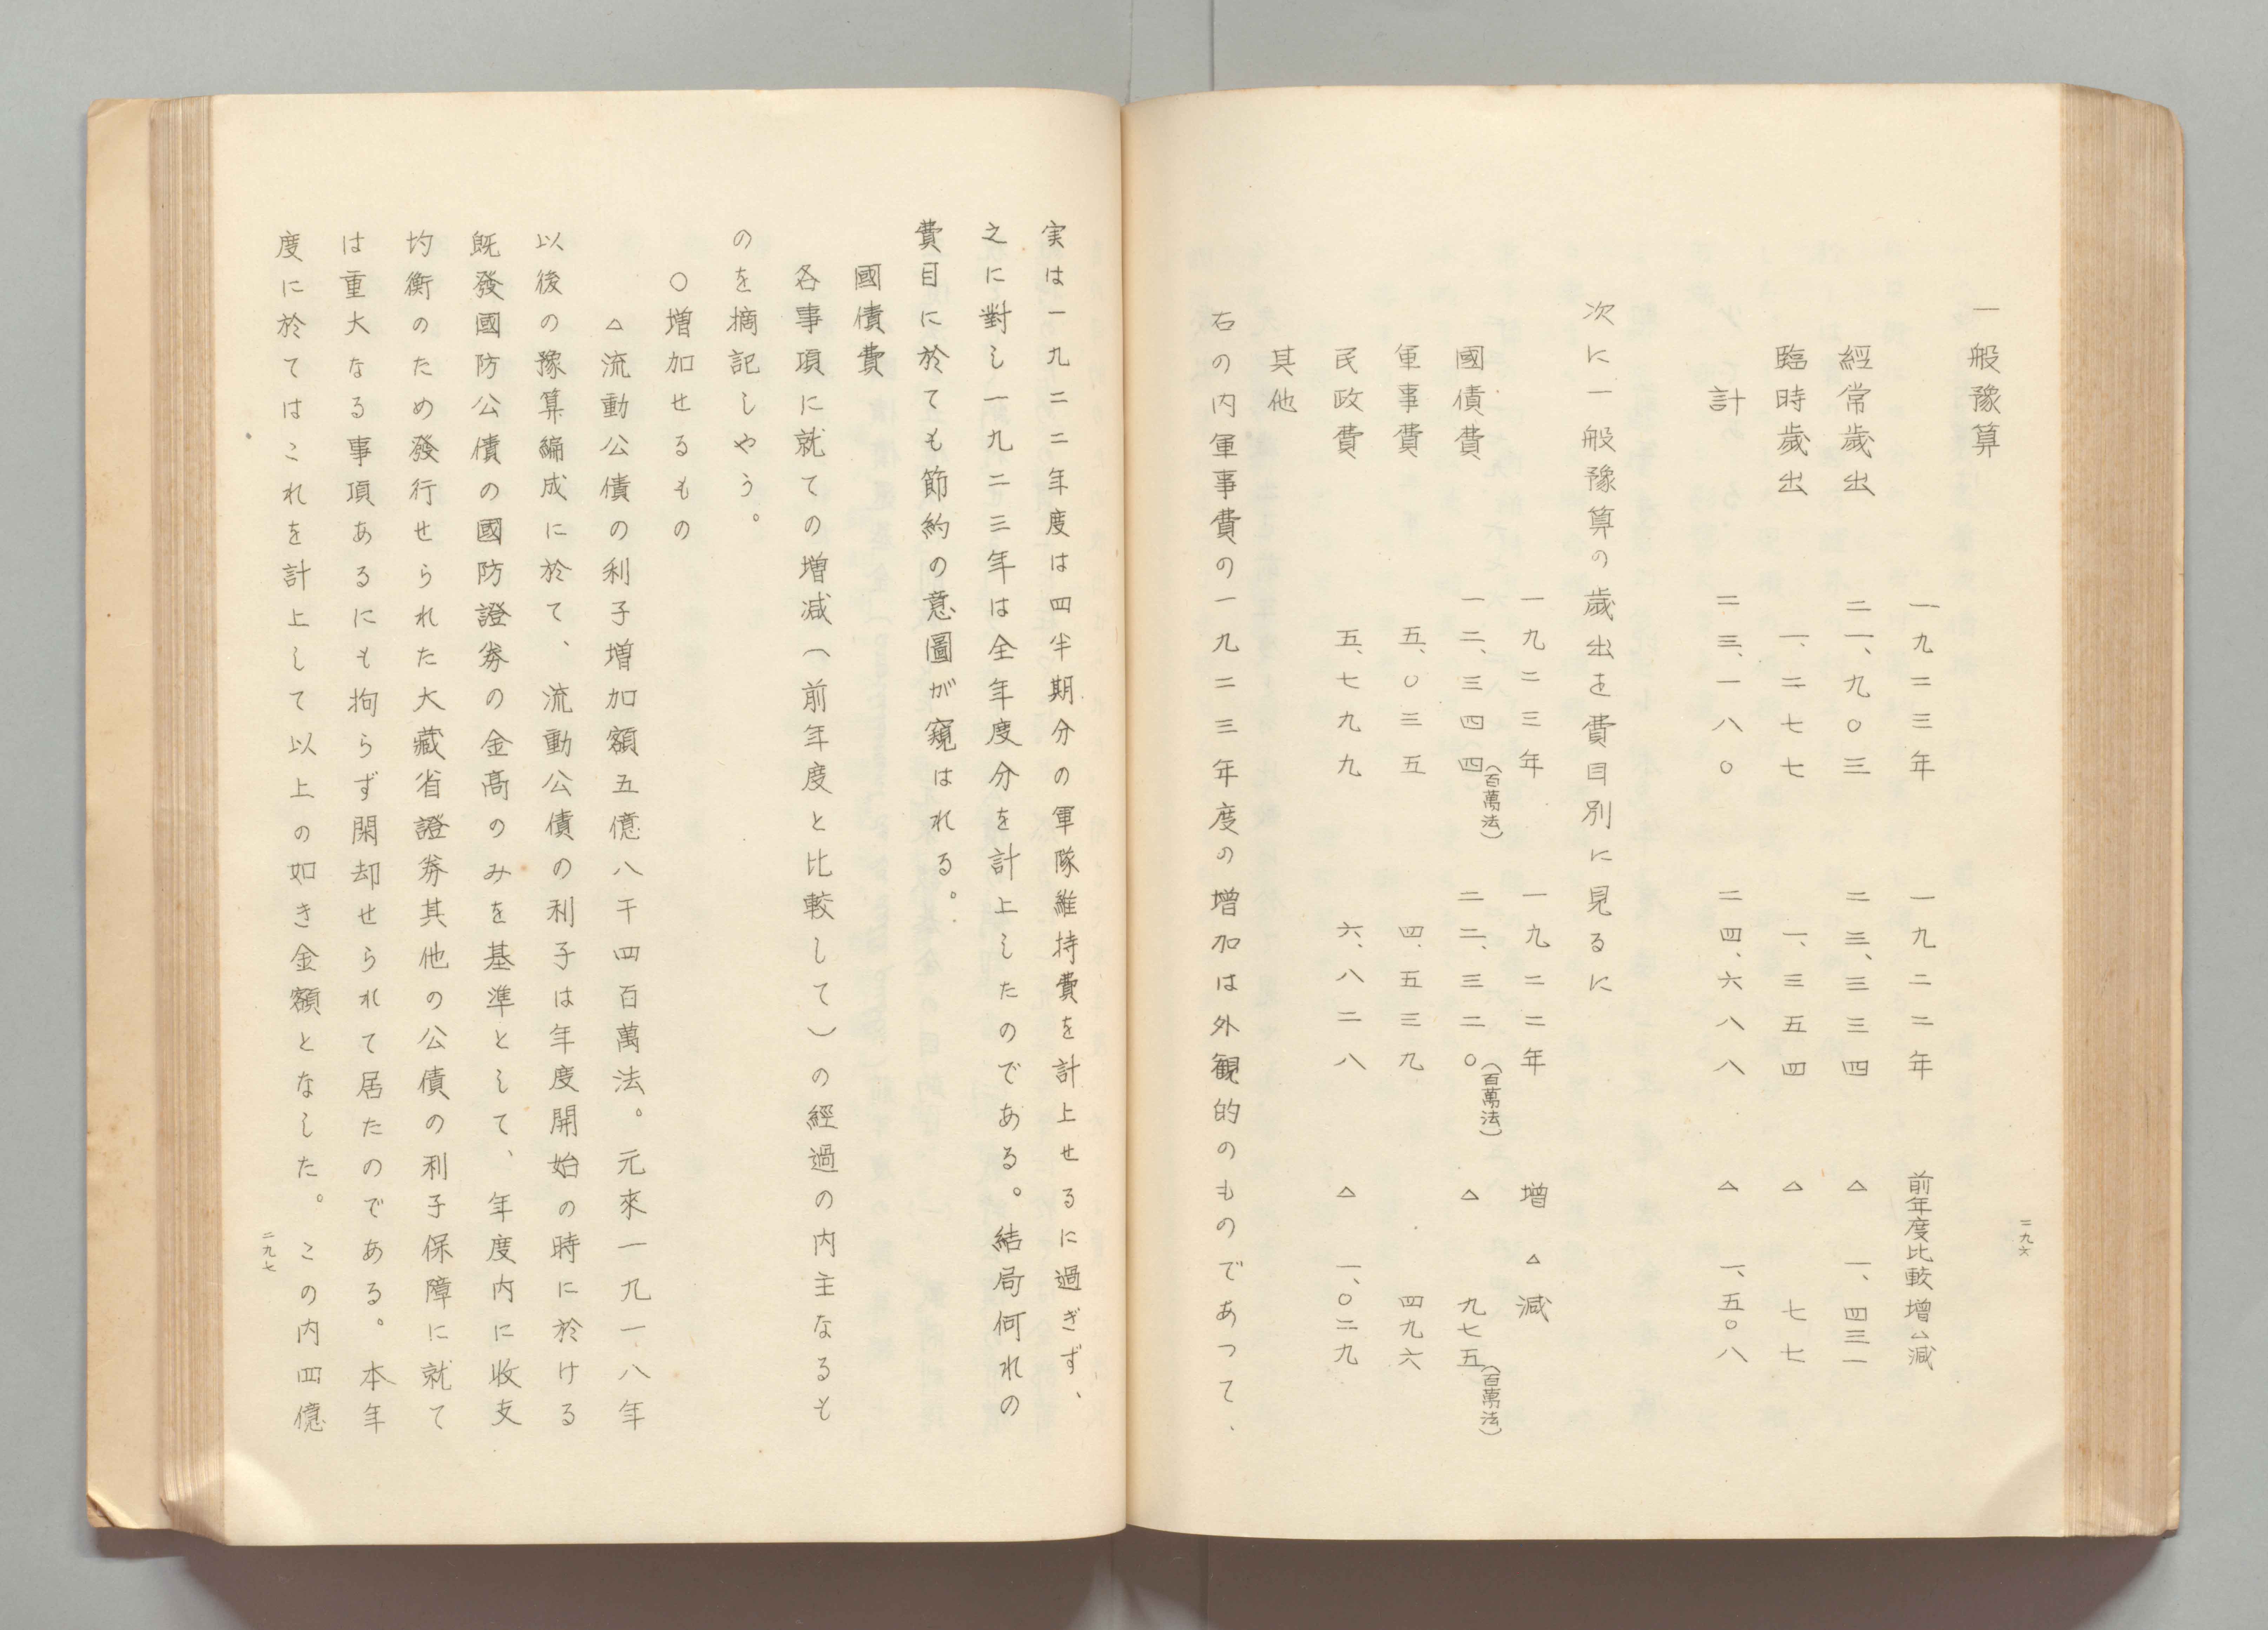 二九六
一般豫算
一九二三年　一九二二年　前年度比較增△減
經常歲出　二一、九〇三　二三、三三四　△　一、四三一
臨時歲出　一、二七七　一、三五四　△　七七
計　二三、一八〇　二四、六八八　△　一、五〇八
次に一般豫算の歲出を費目別に見るに
一九二三年　一九二二年　增△減
國債費　一二、三四四(百萬法)　二二、三二〇(百萬法)　△　九七五(百萬法)
軍事費　五、〇三五　四、五三九　四九六
民政費　五、七九九　六、八二八　△　一、〇二九
其他
右の内軍事費の一九二三年度の增加は外観的のものであつて、
実は一九二二年度は四半期分の軍隊維持費を計上せるに過ぎず、
之に對し一九二三年は全年度分を計上したのである。結局何れの
費目に於ても節約の意圖が窺はれる。
國債費
各事項に就ての增減(前年度と比較して)の經過の内主なるも
のを摘記しやう。
○增加せるもの
△流動公債の利子增加額五億八千四百萬法。元來一九一八年
以後の豫算編成に於て、流動公債の利子は年度開始の時に於ける
既發國防公債の國防證券の金高のみを基準として、年度内に收支
均衡のため發行せられた大藏省證券其他の公債の利子保障に就て
は重大なる事項あるにも拘らず閑却せられて居たのである。本年
度に於てはこれを計上して以上の如き金額となした。この内四億
二九七